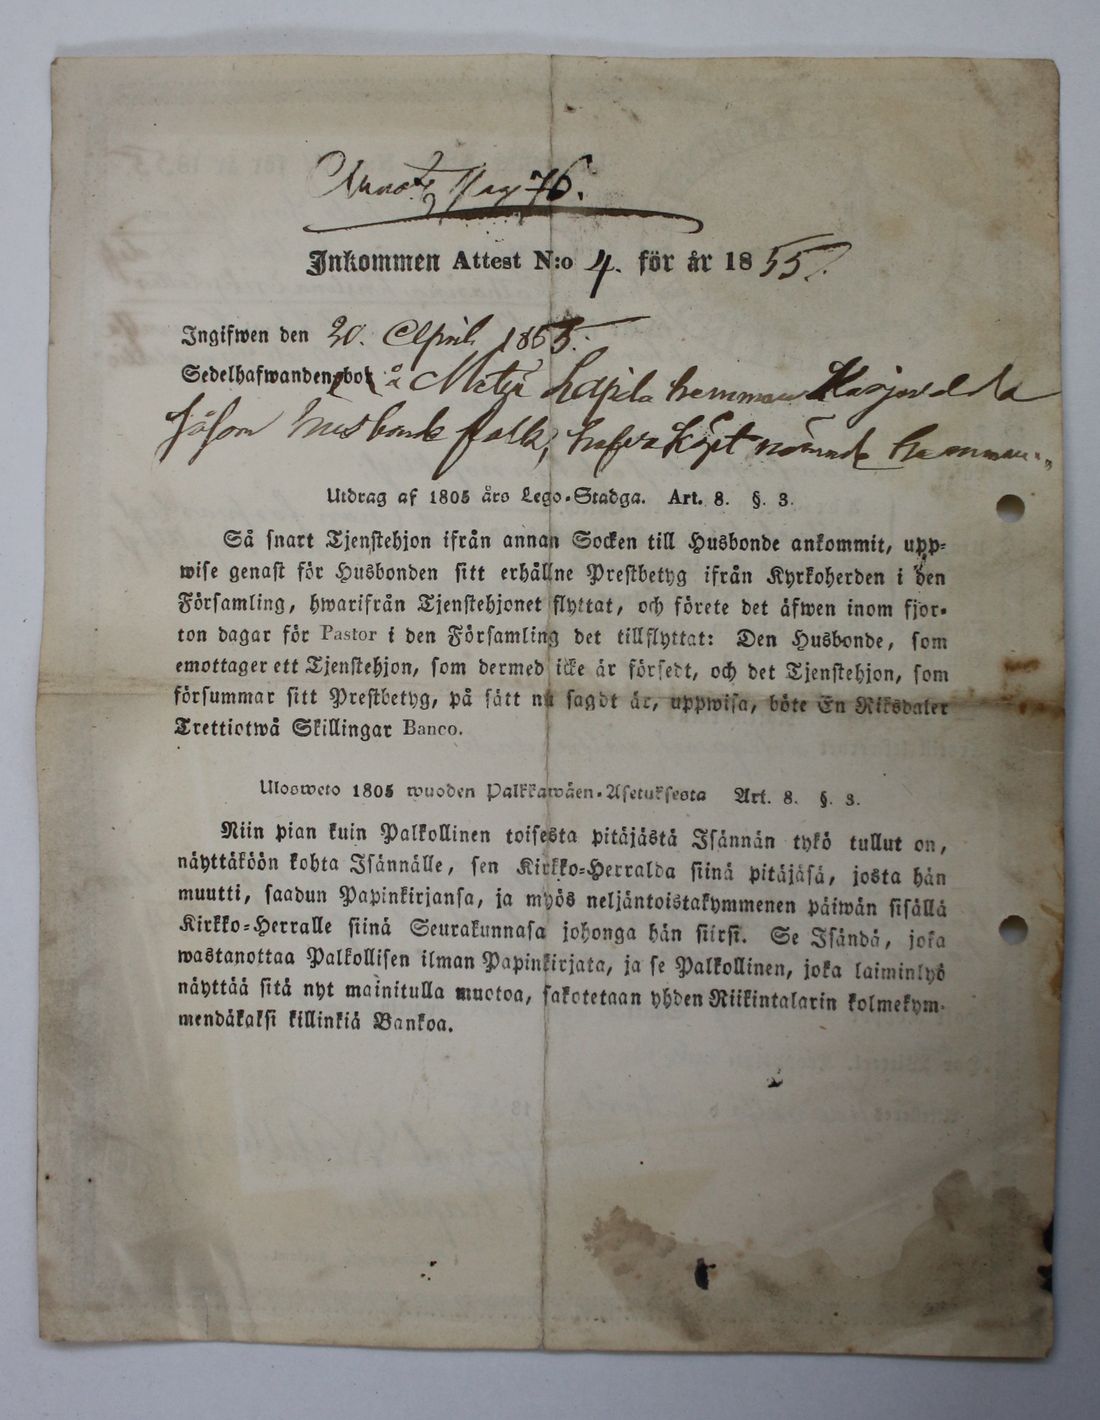 pag 76.
Inkommen Attest N:o 4. för år 1855.
Ingifwen den 20. April 1855.
Sedelhafwanden, bor å hemman
såsom husbonde folk, hafva köpt nämnde hemman
Utdrag af 1805 års Lego-Stadga. Art. 8. §. 3.
Så snart Tjenstehjon ifrån annan Socken till Husbonde ankommit, upp-
wise genast för Husbonden sitt erhållne Prestbetyg ifrån Kyrkoherden i den
Församling, hwarifrån Tjenstehjonet flyttat, och förete det äfwen inom fjor-
ton dagar för Pastor i den Församling det tillflyttat: Den Husbonde, som
emottager ett Tjenstehjon, som dermed icke är försedt, och det Tjenstehjon, som
försummar sitt Prestbetyg, på sätt nu sagdt är, uppwisa, böte En Riksdaler
Trettiotwå Skillingar Banco.
Ulosweto 1805 wuoden Palkkawäen-Asetuksesta Art. 8. §. 3.
Niin pian kuin Palkollinen toisesta pitäjästä Isännän tykö tullut on,
näyttäköön kohta Isännälle, sen Kirkko-Herralda siinä pitäjäsä, josta hän
muutti, saadun Papinkirjansa, ja myös neljäntoistakymmenen päiwän sisällä
Kirkko-Herralle siinä Seurakunnasa johonga hän siirsi. Se Isändä, joka
wastanottaa Palkollisen ilman Papinkirjata, ja se Palkollinen, joka laiminlyö
näyttää sitä nyt mainitulla muotoa, sakotetaan yhden Riikintalarin kolmekym-
mendäkaksi killinkiä Bankoa.